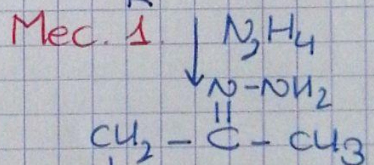 Mec. 1 N2H4
N-NH2
||
CH2-C-CH3